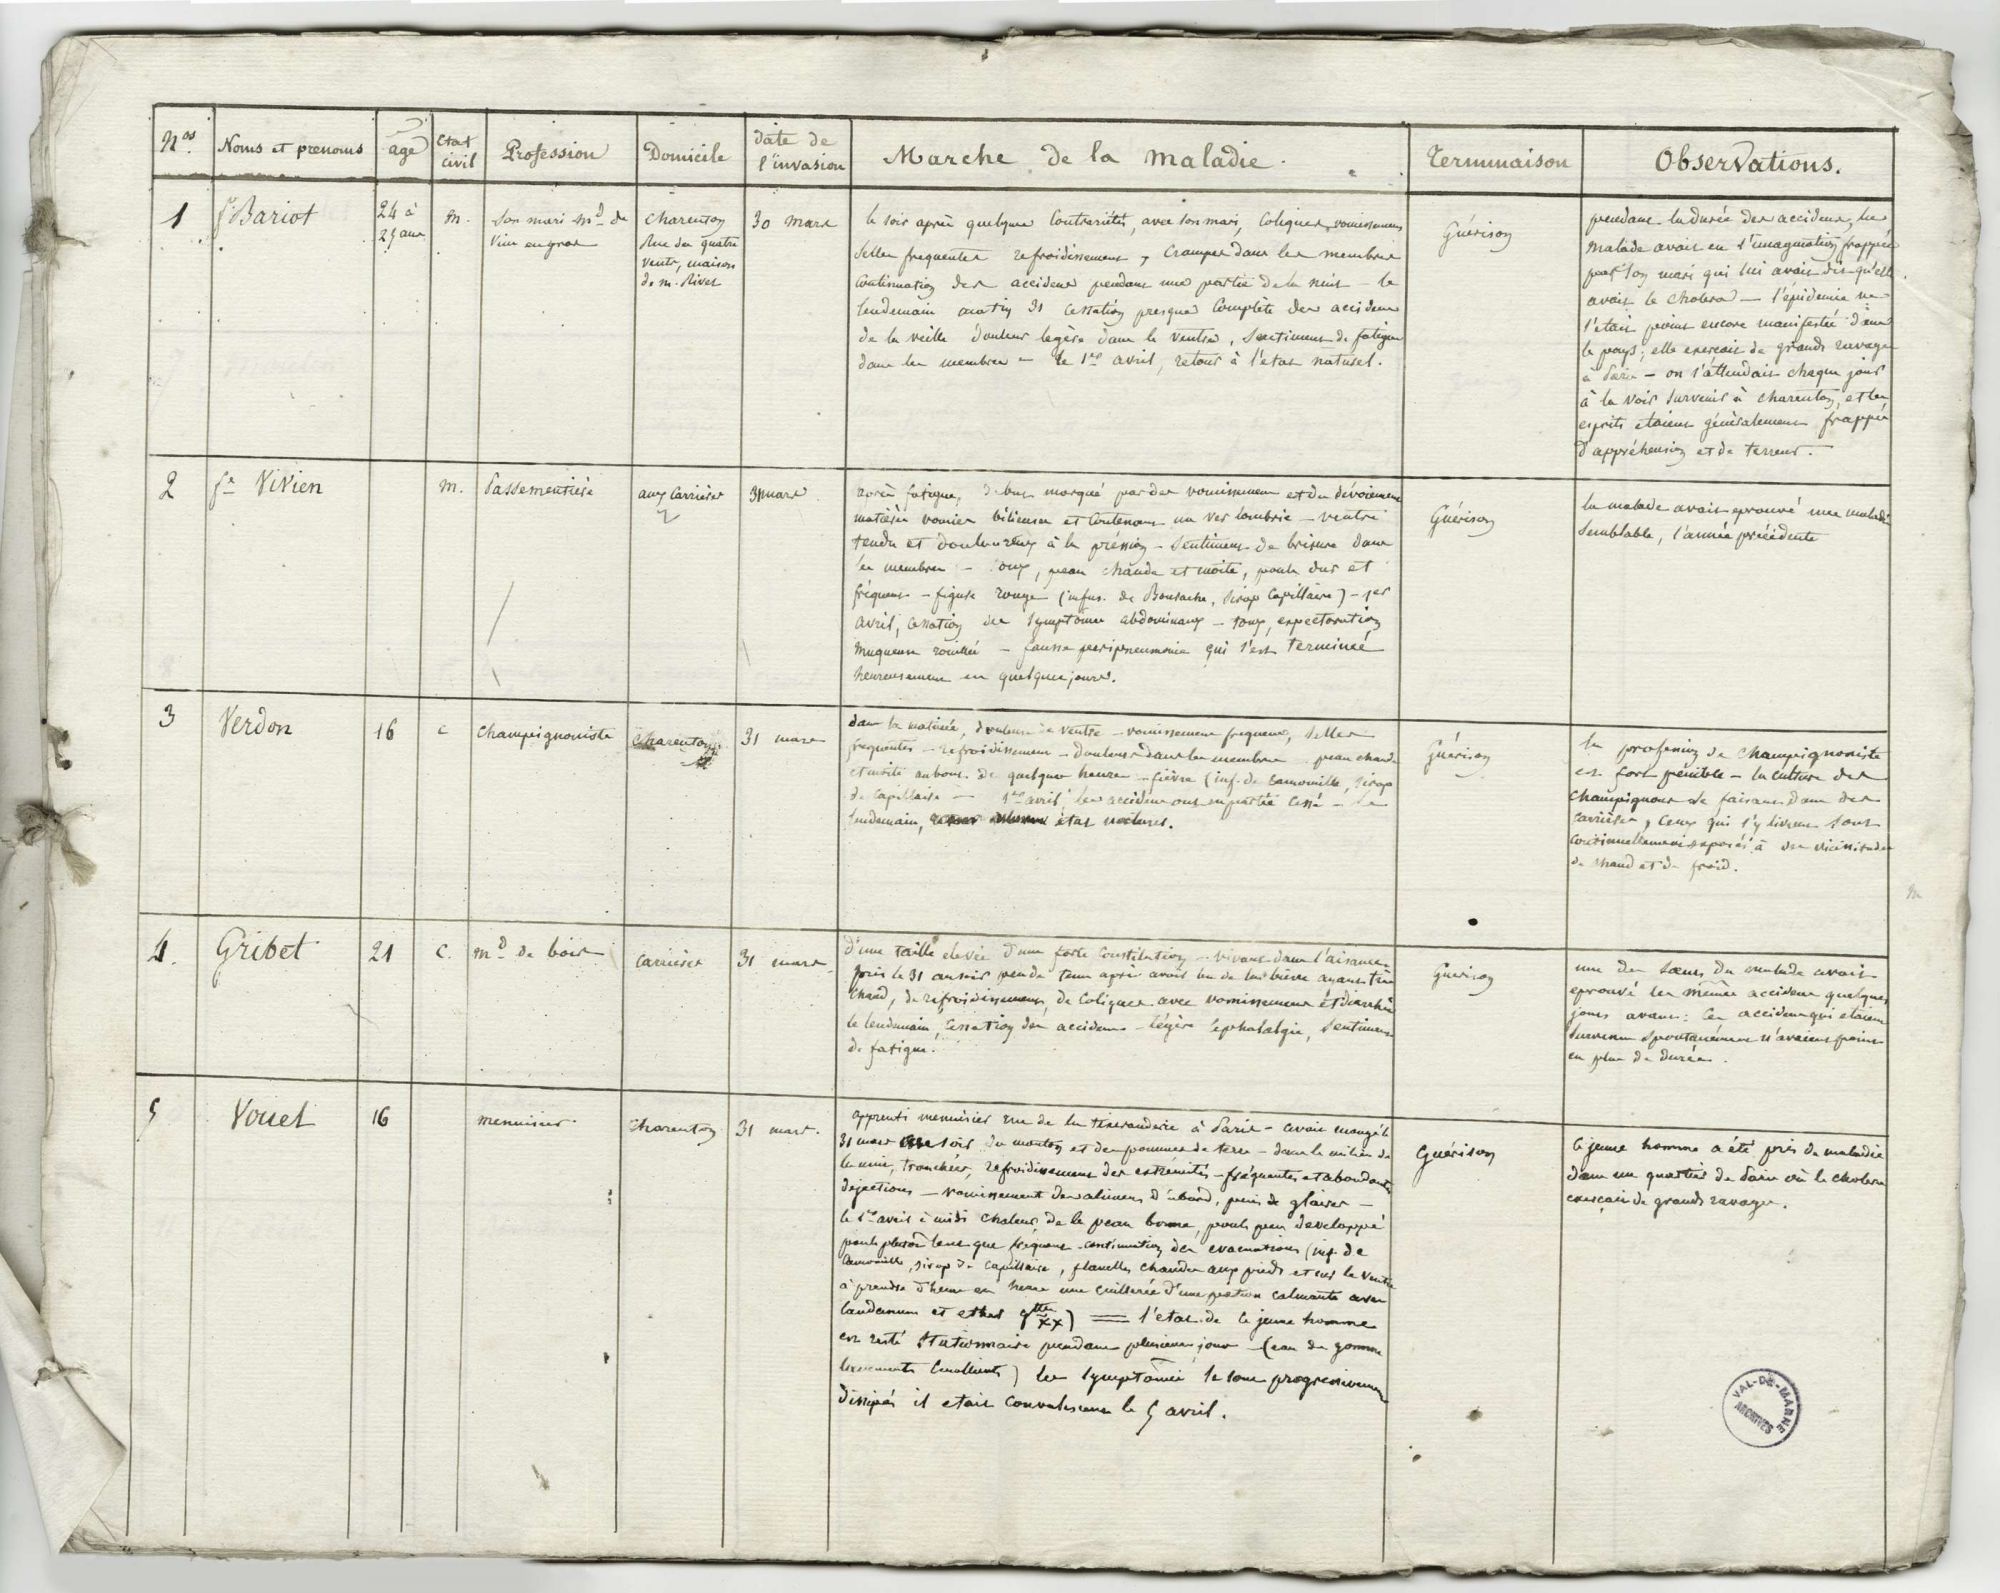 Nos. Noms et prenoms age etat civil Profession Domicile date de l'invasion Marche de la maladie. Terminaison Observations.
1 fe Bariot 24 à 25 ans m. son mari md. de vin en gros charenton Rue des quatre vents, maison de m. Rivet 30 mars
le soir après quelques contrariétés, avec son mari, coliques, vomissemens
selles frequentes refroidissement, crampes dans les membres
continuation des accidens pendant une partie de la nuit - le
lendemain matin 31 cessation presque complète des accidens
de la veille douleur legère dans le ventre, sentiment de fatigue
dans les membres - le 1er avril, retour à l'etat naturel.
Guérison
pendant la durée des accidens, la
malade avait eu l'imagination frappée
par son mari qui lui avait dit qu'elle
avait le cholera - l'épidemie ne
s'etait point encore manifestée dans
le pays; elle exerçait de grands ravages
à Paris - on s'attendait chaque jour
à la voir survenir à charenton, et les
esprits etaient généralement frappés
d'appréhension et de terreur.
2 fe Vivien m. Passementière aux Carrières 31 mars
après fatigue, debut marqué par des vomissemens et du dévoiement
matières vomies bilieuses et contenant un ver lombric - ventre
tendu et douloureux à la préssion - sentiment de brisure dans
les membres - toux, peau chaude et moite, pouls dur et
fréquent - figure rouge (infus. de Bourache, sirop capillaire) - 1er
avril, cessation des symptômes abdominaux - toux, expectoration
muqueuse rouillée - fausse peripneumonie qui s'est terminée
heureusement en quelques jours.
Guérison
la malade avait eprouvé une maladie
semblable, l'année précédente
3 Verdon 16 c champignoniste charenton 31 mars
dans la matinée, douleurs de ventre - vomissemens frequens, selles
frequentes - refroidissement - douleurs dans les membres - peau chaude
et moite au bout de quelques heures - fièvre (inf. de camomille, sirop
de capillaire - 1er avril, les accidens ont en partie cessé - le
lendemain, etat naturel.
Guérison
la profession de champignoniste
est fort penible - la culture des
champignons se faisant dans des
carrières, ceux qui s'y livrent sont
continuellement exposés à des vicissitudes
de chaud et de froid.
4. Gribet 21 c. md de bois carrières 31 mars
d'une taille elevée d'une forte constitution - vivant dans l'aisance
pris le 31 au soir peu de tems après avoir bu de la bière ayant très
chaud, de refroidissement, de coliques avec vomissemens et diarrhée
le lendemain, cessation des accidens - légère céphalalgie, sentiment
de fatigue.
Guérison
une des sœurs du malade avait
eprouvé les mêmes accidens quelques
jours avant: ces accidens qui etaient
survenus spontanément n'avaient point
eu plus de durée.
5 Vouet 16 menuisier. charenton 31 mars.
apprenti menuisier rue de la tixeranderie à Paris - avait mangé le
31 mars au soir du mouton et des pommes de terre - dans le milieu de
la nuit, tranchées, refroidissement des extrémités - fréquentes et abondantes
déjections - vomissement des alimens d'abord, puis de glaires -
le 1er avril à midi chaleur de la peau bonne, pouls peu developpé
pouls plutôt lent que fréquent - continuation des evacuations (inf. de
camomille, sirop de capillaire, flanelles chaudes aux pieds et sur le ventre
à prendre d'heure en heure une cuillerée d'une potion calmante avec
laudanum et ether gttes xx) = l'etat de ce jeune homme
est resté stationnaire pendant plusieurs jours - (eau de gomme
lavements émollients) les symptômes se sont progressivement
dissipés il etait convalescent le 5 avril.
Guérison
ce jeune homme a été pris de maladie
dans un quartier de Paris où le cholera
exerçait de grands ravages.
VAL-DE-MARNE
ARCHIVES